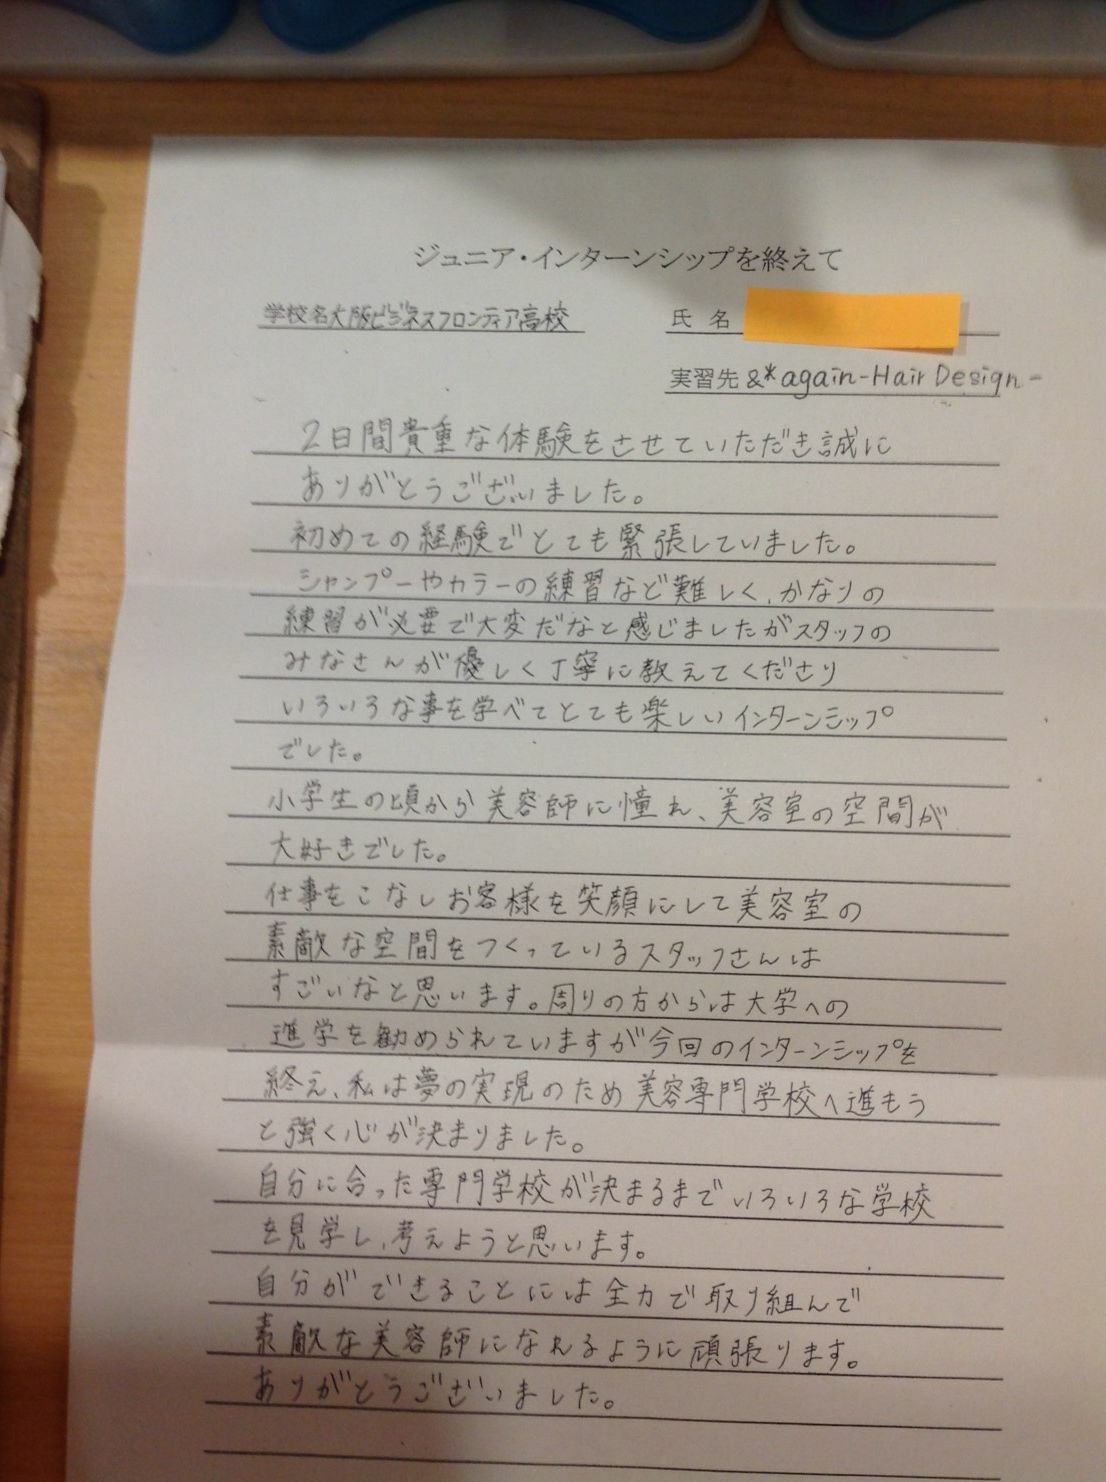 ジュニア・インターンシップを終えて
学校名大阪ビジネスフロンティア高校
氏 名
実習先 &*again-Hair Design-
2日間貴重な体験をさせていただき誠に
ありがとうございました。
初めての経験でとても緊張していました。
シャンプーやカラーの練習など難しく、かなりの
練習が必要で大変だなと感じましたがスタッフの
みなさんが優しく丁寧に教えてくださり
いろいろな事を学べてとても楽しいインターンシップ
でした。
小学生の頃から美容師に憧れ、美容室の空間が
大好きでした。
仕事をこなしお客様を笑顔にして美容室の
素敵な空間をつくっているスタッフさんは
すごいなと思います。周りの方からは大学への
進学を勧められていますが今回のインターンシップを
終え、私は夢の実現のため美容専門学校へ進もう
と強く心が決まりました。
自分に合った専門学校が決まるまでいろいろな学校
を見学し、考えようと思います。
自分ができることには全力で取り組んで
素敵な美容師になれるように頑張ります。
ありがとうございました。